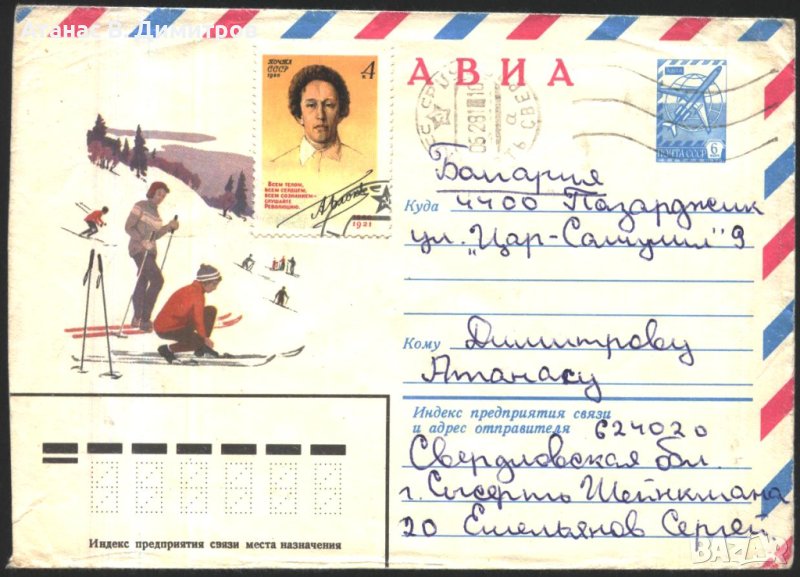 Атанас В. Димитров
ПОЧТА
СССР
1980
4
К
ВСЕМ ТЕЛОМ,
ВСЕМ СЕРДЦЕМ,
ВСЕМ СОЗНАНИЕМ—
СЛУШАЙТЕ
РЕВОЛЮЦИЮ.
1921
АВИА
АВИА
ПОЧТА СССР 6
Болгария
Куда 4400 Пазарджик
ул. "Цар-Самуил" 9
Кому Димитрову
Атанасу
Индекс предприятия связи
и адрес отправителя 624020
Свердловская обл.
г. Сысерть Шейнкмана
20 Емельянов Сергей.
Индекс предприятия связи места назначения
BAZAR